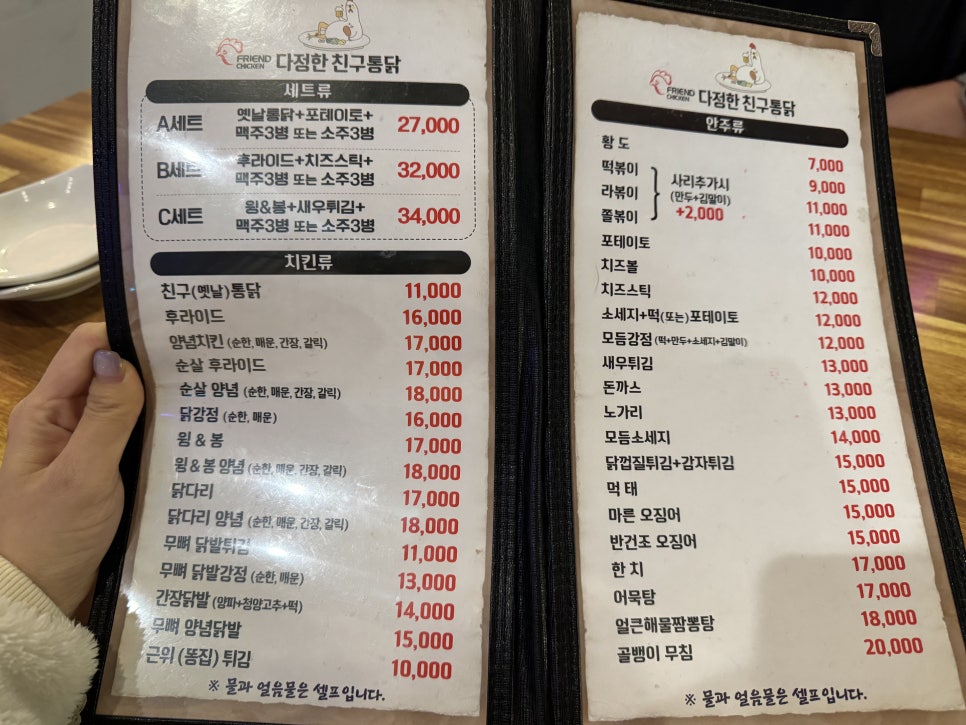 FRIEND CHICKEN 다정한 친구통닭
세트류
A세트 옛날통닭+포테이토+ 27,000
맥주3병 또는 소주3병
B세트 후라이드+치즈스틱+ 32,000
맥주3병 또는 소주3병
C세트 윙&봉+새우튀김+ 34,000
맥주3병 또는 소주3병
치킨류
친구(옛날)통닭 11,000
후라이드 16,000
양념치킨 (순한, 매운, 간장, 갈릭) 17,000
순살 후라이드 17,000
순살 양념 (순한, 매운, 간장, 갈릭) 18,000
닭강정 (순한, 매운) 16,000
윙 & 봉 17,000
윙 & 봉 양념 (순한, 매운, 간장, 갈릭) 18,000
닭다리 17,000
닭다리 양념 (순한, 매운, 간장, 갈릭) 18,000
무뼈 닭발튀김 11,000
무뼈 닭발강정 (순한, 매운) 13,000
간장닭발 (양파+청양고추+떡) 14,000
무뼈 양념닭발 15,000
근위 (똥집) 튀김 10,000
※ 물과 얼음물은 셀프입니다.
FRIEND CHICKEN 다정한 친구통닭
안주류
황 도 7,000
떡볶이 9,000
라볶이 11,000
쫄볶이 11,000
사리추가시
(만두+김말이)
+2,000
포테이토 10,000
치즈볼 10,000
치즈스틱 12,000
소세지+떡(또는)포테이토 12,000
모듬강정 (떡+만두+소세지+김말이) 12,000
새우튀김 13,000
돈까스 13,000
노가리 13,000
모듬소세지 14,000
닭껍질튀김+감자튀김 15,000
먹 태 15,000
마른 오징어 15,000
반건조 오징어 15,000
한 치 17,000
어묵탕 17,000
얼큰해물짬뽕탕 18,000
골뱅이 무침 20,000
※ 물과 얼음물은 셀프입니다.